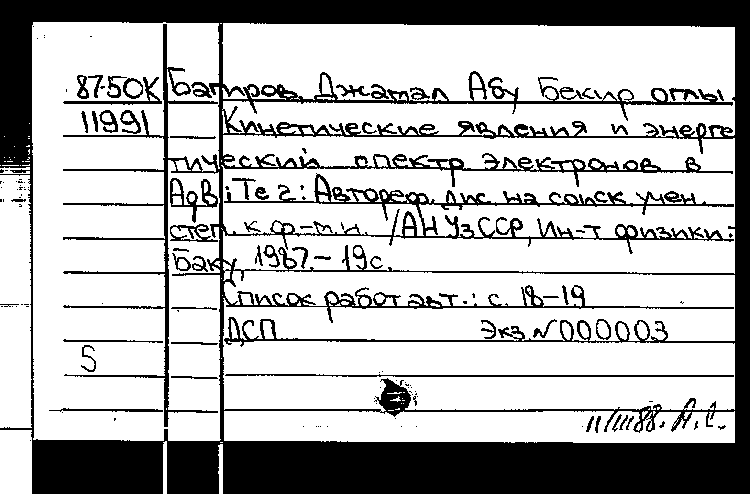 87-5ОК Багиров, Джамал Абу Бекир оглы.
11991 Кинетические явления и энерге
тический спектр электронов в
AgBiTe2: Автореф. дис. на соиск. учен.
степ. к.ф-м.н. /АН УзССР, Ин-т физики.-
Баку, 1987.- 19 с.
Список работ авт.: с. 18-19
ДСП Экз. N 000003
5
11/III 88. А.С.